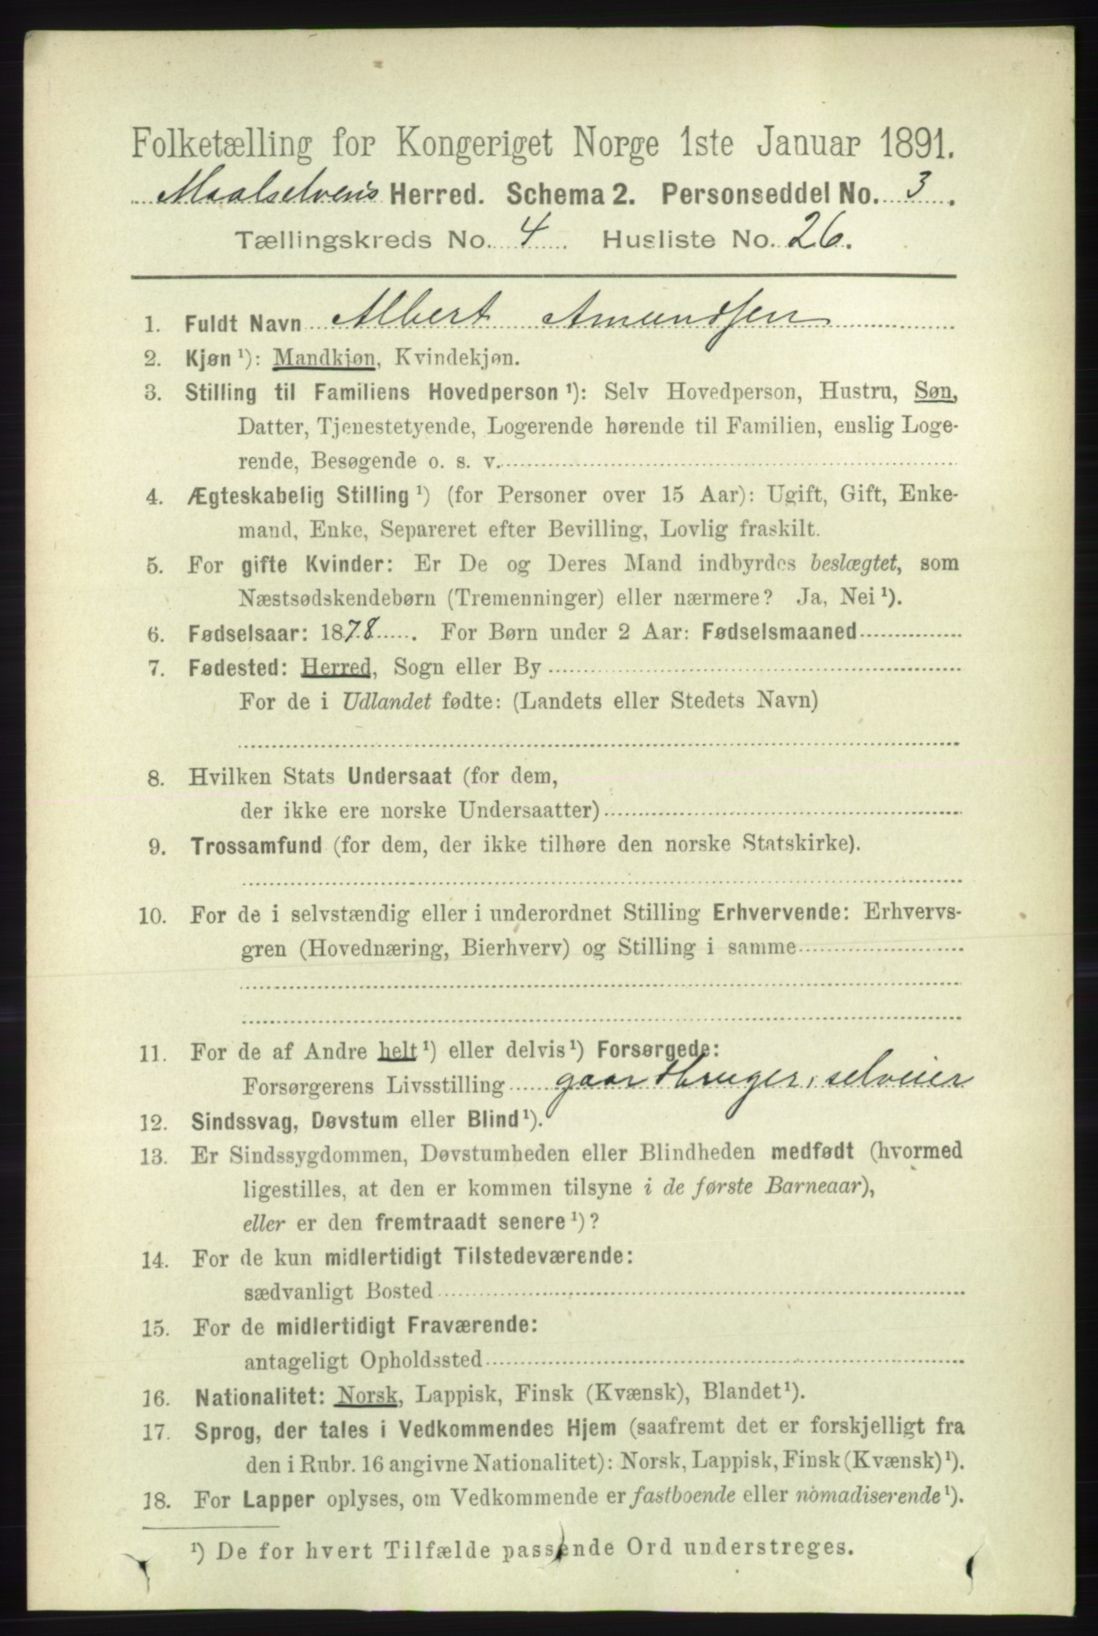 Folketælling for Kongeriget Norge 1ste Januar 1891.
Maalselvens Herred. Schema 2. Personseddel No. 3.
Tællingskreds No. 4 Husliste No. 26.
1. Fuldt Navn Albert Amundsen
2. Kjøn ¹): Mandkjøn, Kvindekjøn.
3. Stilling til Familiens Hovedperson ¹): Selv Hovedperson, Hustru, Søn,
Datter, Tjenestetyende, Logerende hørende til Familien, enslig Loge-
rende, Besøgende o. s. v.
4. Ægteskabelig Stilling ¹) (for Personer over 15 Aar): Ugift, Gift, Enke-
mand, Enke, Separeret efter Bevilling, Lovlig fraskilt.
5. For gifte Kvinder: Er De og Deres Mand indbyrdes beslægtet, som
Næstsødskendebørn (Tremenninger) eller nærmere? Ja, Nei ¹).
6. Fødselsaar: 1878. For Børn under 2 Aar: Fødselsmaaned
7. Fødested: Herred, Sogn eller By
For de i Udlandet fødte: (Landets eller Stedets Navn)
8. Hvilken Stats Undersaat (for dem,
der ikke ere norske Undersaatter)
9. Trossamfund (for dem, der ikke tilhøre den norske Statskirke).
10. For de i selvstændig eller i underordnet Stilling Erhvervende: Erhvervs-
gren (Hovednæring, Bierhverv) og Stilling i samme
11. For de af Andre helt ¹) eller delvis ¹) Forsørgede:
Forsørgerens Livsstilling gaardbruger, selveier
12. Sindssvag, Døvstum eller Blind ¹).
13. Er Sindssygdommen, Døvstumheden eller Blindheden medfødt (hvormed
ligestilles, at den er kommen tilsyne i de første Barneaar),
eller er den fremtraadt senere ¹)?
14. For de kun midlertidigt Tilstedeværende:
sædvanligt Bosted
15. For de midlertidigt Fraværende:
antageligt Opholdssted
16. Nationalitet: Norsk, Lappisk, Finsk (Kvænsk), Blandet ¹).
17. Sprog, der tales i Vedkommendes Hjem (saafremt det er forskjelligt fra
den i Rubr. 16 angivne Nationalitet): Norsk, Lappisk, Finsk (Kvænsk) ¹).
18. For Lapper oplyses, om Vedkommende er fastboende eller nomadiserende ¹).
¹) De for hvert Tilfælde passende Ord understreges.